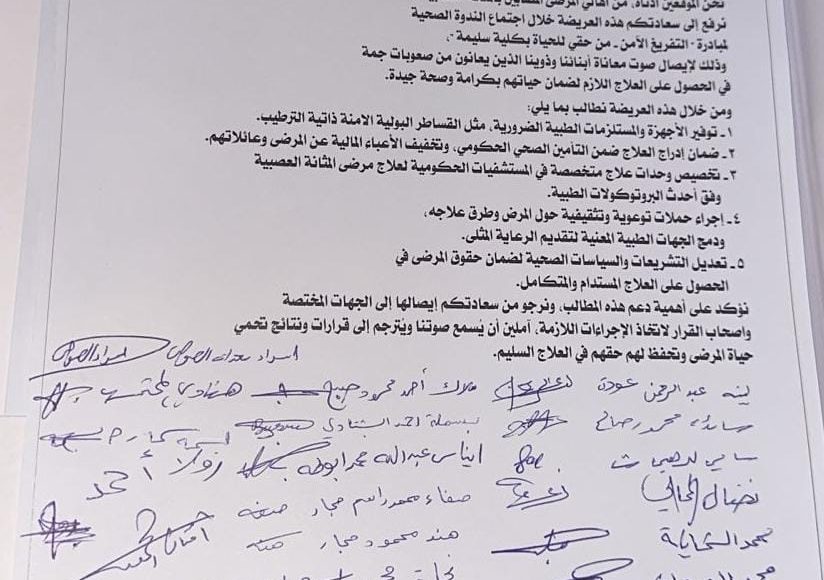 نحن الموقعين أدناه، من أهالي المرضى
نرفع إلى سعادتكم هذه العريضة خلال اجتماع الندوة الصحية
لمبادرة "التفريغ الآمن - من حقي للحياة بكلية سليمة"،
وذلك لإيصال صوت معاناة أبنائنا وذوينا الذين يعانون من صعوبات جمة
في الحصول على العلاج اللازم لضمان حياتهم بكرامة وصحة جيدة.
ومن خلال هذه العريضة نطالب بما يلي:
١ـ توفير الأجهزة والمستلزمات الطبية الضرورية، مثل القساطر البولية الامنة ذاتية الترطيب.
٢ـ ضمان إدراج العلاج ضمن التأمين الصحي الحكومي، وتخفيف الأعباء المالية عن المرضى وعائلاتهم.
٣ـ تخصيص وحدات علاج متخصصة في المستشفيات الحكومية لعلاج مرضى المثانة العصبية
وفق أحدث البروتوكولات الطبية.
٤ـ إجراء حملات توعوية وتثقيفية حول المرض وطرق علاجه،
ودمج الجهات الطبية المعنية لتقديم الرعاية المثلى.
٥ـ تعديل التشريعات والسياسات الصحية لضمان حقوق المرضى في
الحصول على العلاج المستدام والمتكامل.
نؤكد على أهمية دعم هذه المطالب، ونرجو من سعادتكم إيصالها إلى الجهات المختصة
واصحاب القرار لاتخاذ الإجراءات اللازمة، آملين أن يُسمع صوتنا ويُترجم إلى قرارات ونتائج تحمي
حياة المرضى وتحفظ لهم حقهم في العلاج السليم.
اسراء
لينه عبد الرحمن عودة ملاك أحمد محمود هنادي
محمد صالح بسملة احمد
سامي ايناس عبدالله محمد ابوطه رولا أحمد
نضال المجالي صفاء محمد راسم حجار صفاء
محمد هند محمود حجار هند